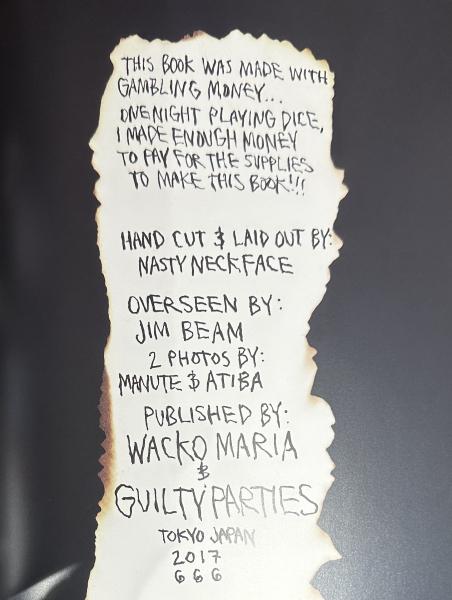 THIS BOOK WAS MADE WITH
GAMBLING MONEY...
ONE NIGHT PLAYING DICE,
I MADE ENOUGH MONEY
TO PAY FOR THE SUPPLIES
TO MAKE THIS BOOK!!!
HAND CUT & LAID OUT BY:
NASTY NECKFACE
OVERSEEN BY:
JIM BEAM
2 PHOTOS BY:
MANUTE & ATIBA
PUBLISHED BY:
WACKO MARIA
&
GUILTY PARTIES
TOKYO JAPAN
2017
6 6 6